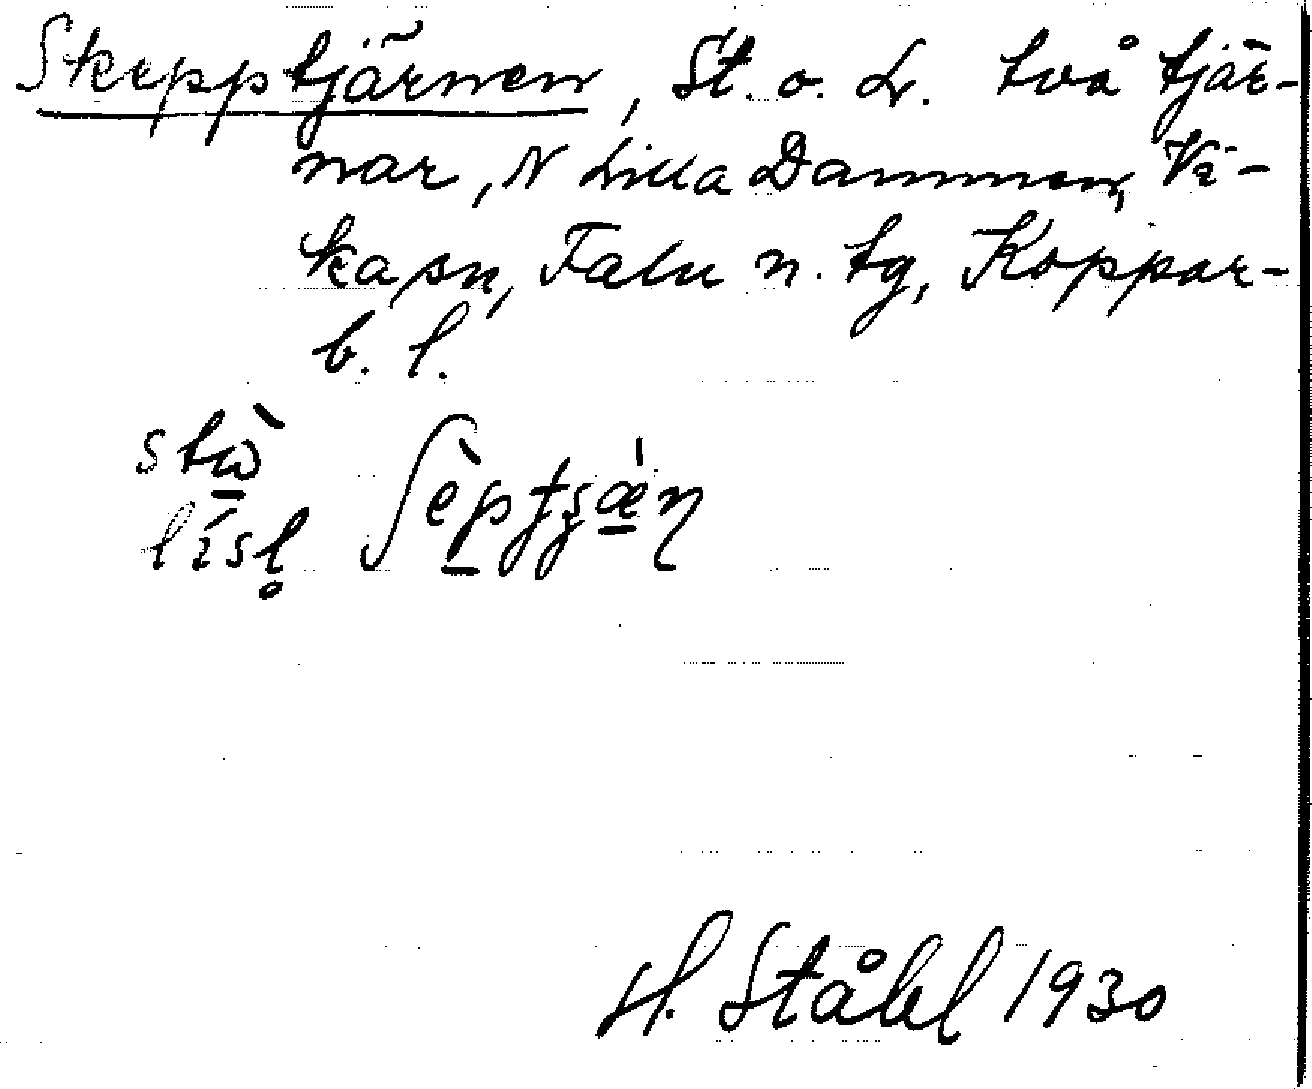 Skepptjärnen, St. o. L. två tjär-
nar, N Lilla Dammen, Vi-
ka sn, Falu n. tg, Koppar-
b. l.
H. Ståhl 1930